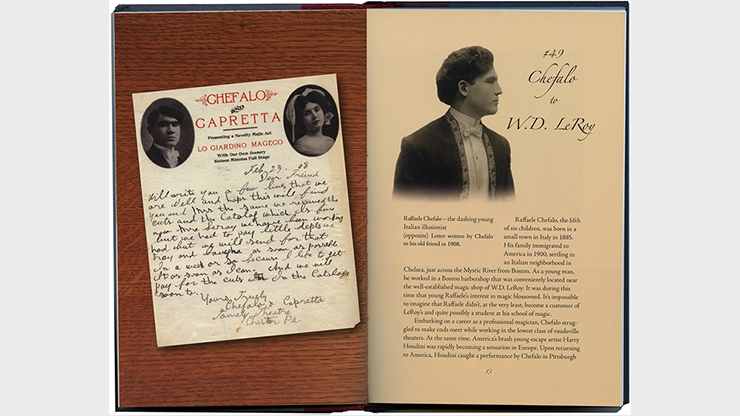 CHEFALO
AND
CAPRETTA
Presenting a Novelty Magic Act
LO GIARDINO MAGECO
With Our Own Scenery
Sixteen Minutes Full Stage
Feb, 23, 08
Dear Friend
Will write you a few lines that we
are Well and hope this will find
you and Mrs the same we received the
cuts and the Catalog which is fine
now Mrs Leroy we have been working
but we had to pay little depts we
had but we will send for that
tray and as soon as possible
In a week or so because I like to get
It as soon as I can. And we will
pay for the cuts in the Catalog
soon to.
Yours Truly
Chefalo & Capretta
Family Theatre
Chester Pa.
#49
Chefalo
to
W.D. LeRoy
Raffaele Chefalo – the dashing young
Italian illusionist
(opposite) Letter written by Chefalo
to his old friend in 1908.
Raffaele Chefalo, the fifth
of six children, was born in a
small town in Italy in 1885.
His family immigrated to
America in 1900, settling in
an Italian neighborhood in
Chelsea, just across the Mystic River from Boston. As a young
man, he worked in a Boston barbershop that was conveniently located near
the well-established magic shop of W.D. LeRoy. It was during this
time that young Raffaele's interest in magic blossomed. It's impossible
to imagine that Raffaele didn't, at the very least, become a customer of
LeRoy's and quite possibly a student at his school of magic.
Embarking on a career as a professional magician, Chefalo strug-
gled to make ends meet while working in the lowest class of vaudeville
theaters. At the same time, America's brash young escape artist Harry
Houdini was rapidly becoming a sensation in Europe. Upon returning
to America, Houdini caught a performance by Chefalo in Pittsburgh
13